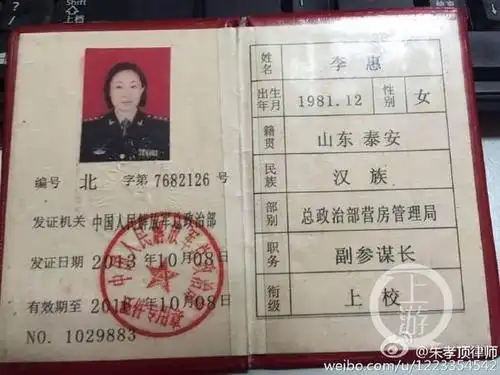 Shift
上档
编号 北 字第 7682126 号
发证机关 中国人民解放军总政治部
发证日期 2013年10月08日
有效期至 年10月08日
NO. 1029883
姓名 李惠
出生年月 1981.12 性别 女
籍贯 山东 泰安
民族 汉族
部别 总政治部营房管理局
职务 副参谋长
衔级 上校
上游
@朱孝顶律师
weibo.com/u/1223354542